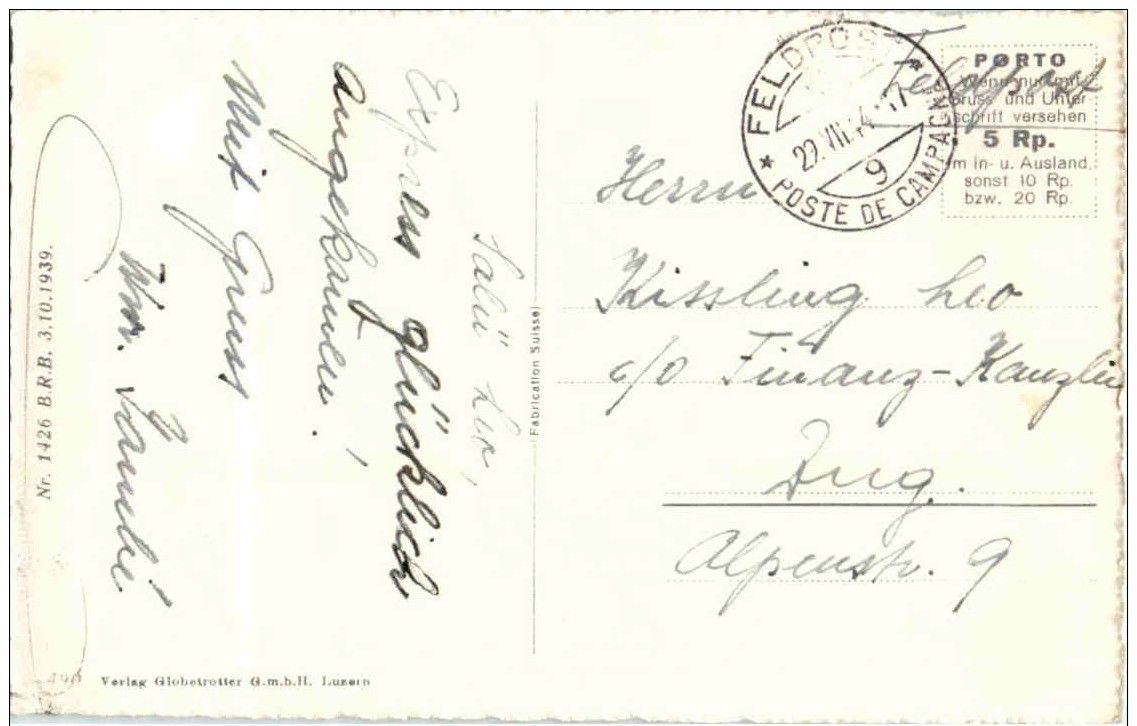 Salü Leo,
Express glücklich
angekommen!
Mit Gruss
Nr. 1426 B.R.B. 3.10.1939.
Verlag Globetrotter G.m.b.H. Luzern
Fabrication Suisse
FELDPOST
POSTE DE CAMPAGNE
9
Feldpost
PORTO
Wenn nur mit
Gruss und Unter
schrift versehen
5 Rp.
im In- u. Ausland
sonst 10 Rp.
bzw. 20 Rp.
Herrn
Kissling Leo
c/o Finanz-Kanzlei
Zug.
Alpenstr. 9